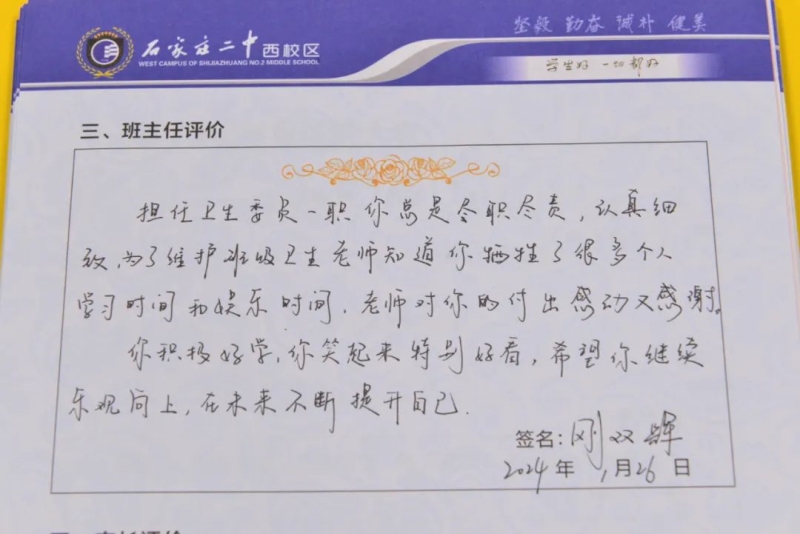 坚毅 勤奋 诚朴 健美
石家庄二中西校区
WEST CAMPUS OF SHIJIAZHUANG NO.2 MIDDLE SCHOOL
学生好 一切都好
三、班主任评价
担任卫生委员一职你总是尽职尽责,认真细
致,为了维护班级卫生老师知道你牺牲了很多个人
学习时间和娱乐时间,老师对你的付出感动又感谢。
你积极好学,你笑起来特别好看,希望你继续
乐观向上,在未来不断提升自己.
签名:刚双辉
2024年1月26日